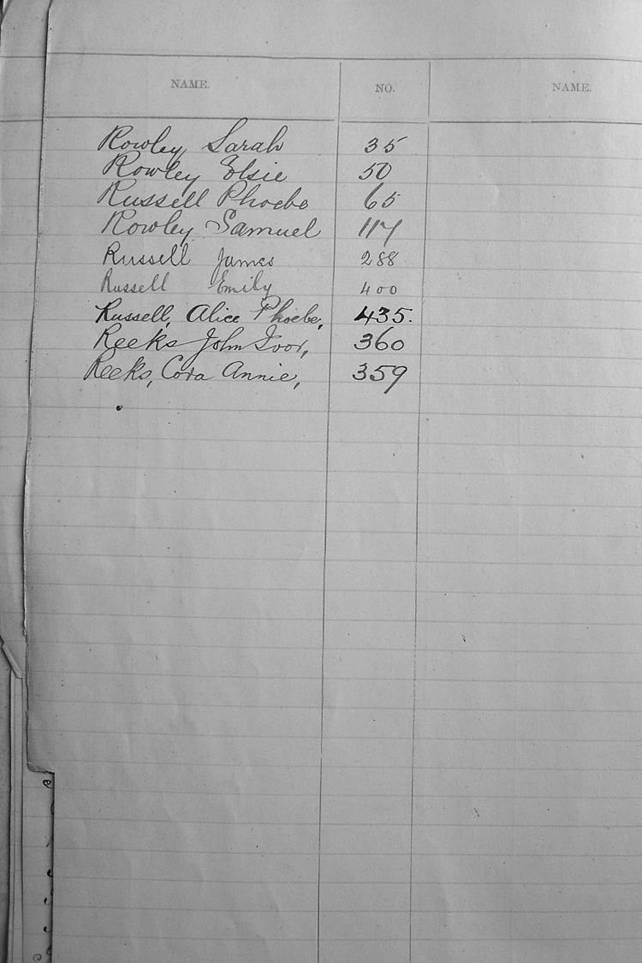 NAME. NO. NAME.
Rowley Sarah 35
Rowley Elsie 50
Russell Phoebe 65
Rowley Samuel 117
Russell James 288
Russell Emily 400
Russell, Alice Phoebe, 435.
Reeks John Ivor, 360
Reeks, Cora Annie, 359